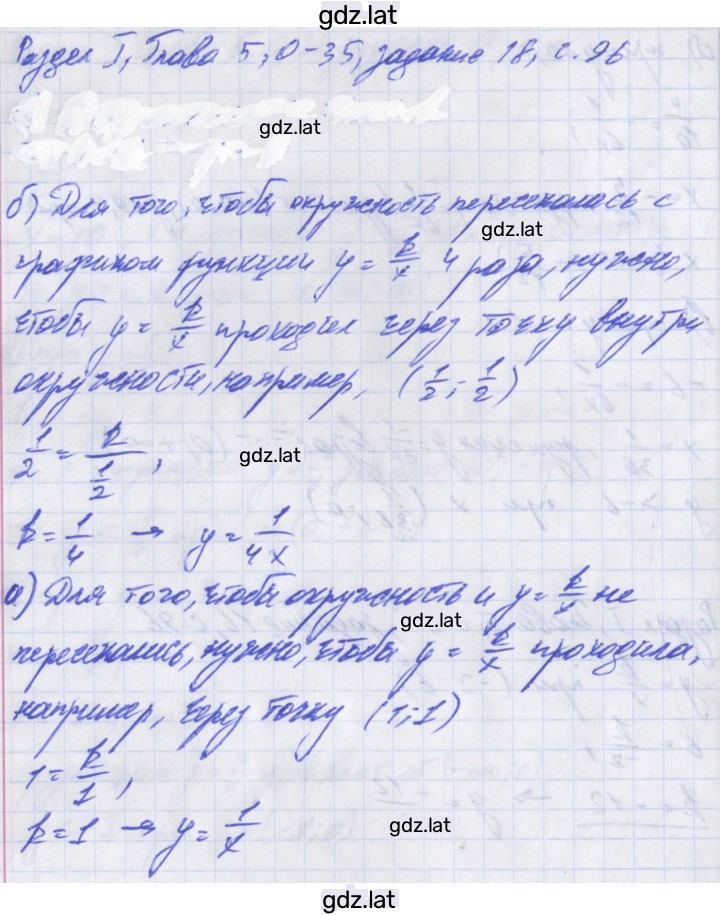 gdz.lat
Раздел I, Глава 5, О-35, задание 18, с. 96
gdz.lat
б) Для того, чтобы окружность пересекалась с
gdz.lat
графиком функции y = k/x 4 раза, нужно,
чтобы y = k/x проходил через точку внутри
окружности, например, (1/2; 1/2)
1/2 = k/(1/2),
gdz.lat
k = 1/4 → y = 1/4x
а) Для того, чтобы окружность и y = k/x не
gdz.lat
пересекались, нужно, чтобы y = k/x проходила,
например, через точку (1; 1)
1 = k/1,
k = 1 → y = 1/x
gdz.lat
gdz.lat